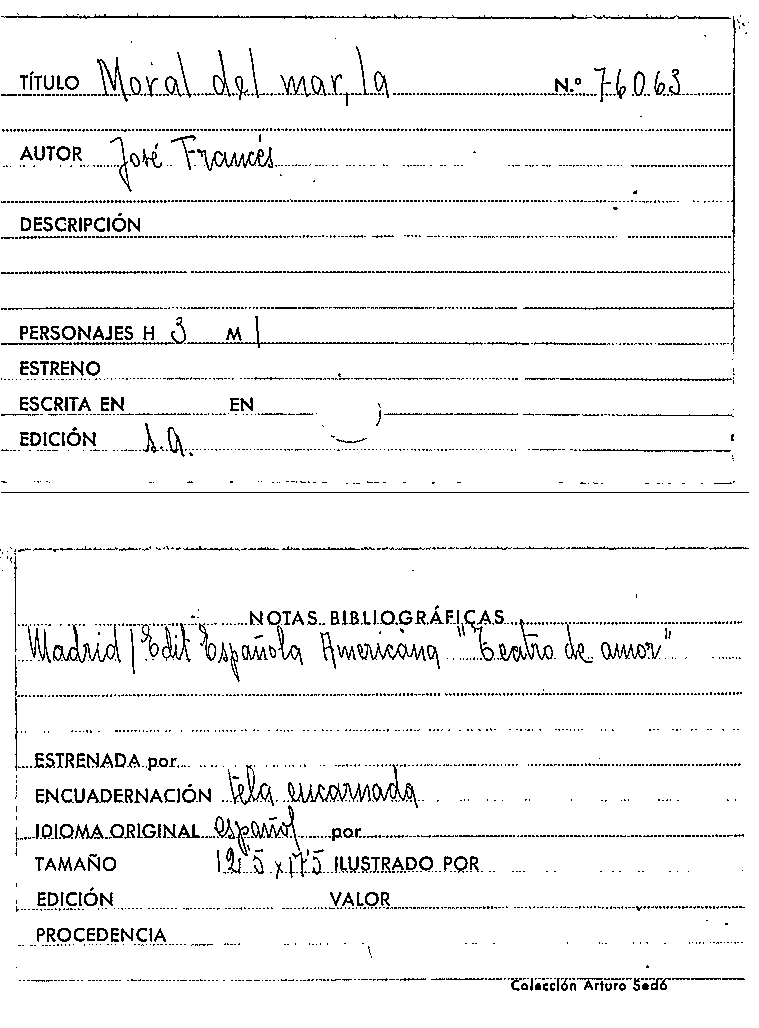 TÍTULO Moral del mar, la N.º 76063
AUTOR José Francés
DESCRIPCIÓN
PERSONAJES H 3 M 1
ESTRENO
ESCRITA EN EN
EDICIÓN s.a.
NOTAS BIBLIOGRÁFICAS
Madrid / Edit Española Americana "Teatro de amor"
ESTRENADA por
ENCUADERNACIÓN tela encarnada
IDIOMA ORIGINAL español por
TAMAÑO 12'5 x 17'5 ILUSTRADO POR
EDICIÓN VALOR
PROCEDENCIA
Colección Arturo Sedó